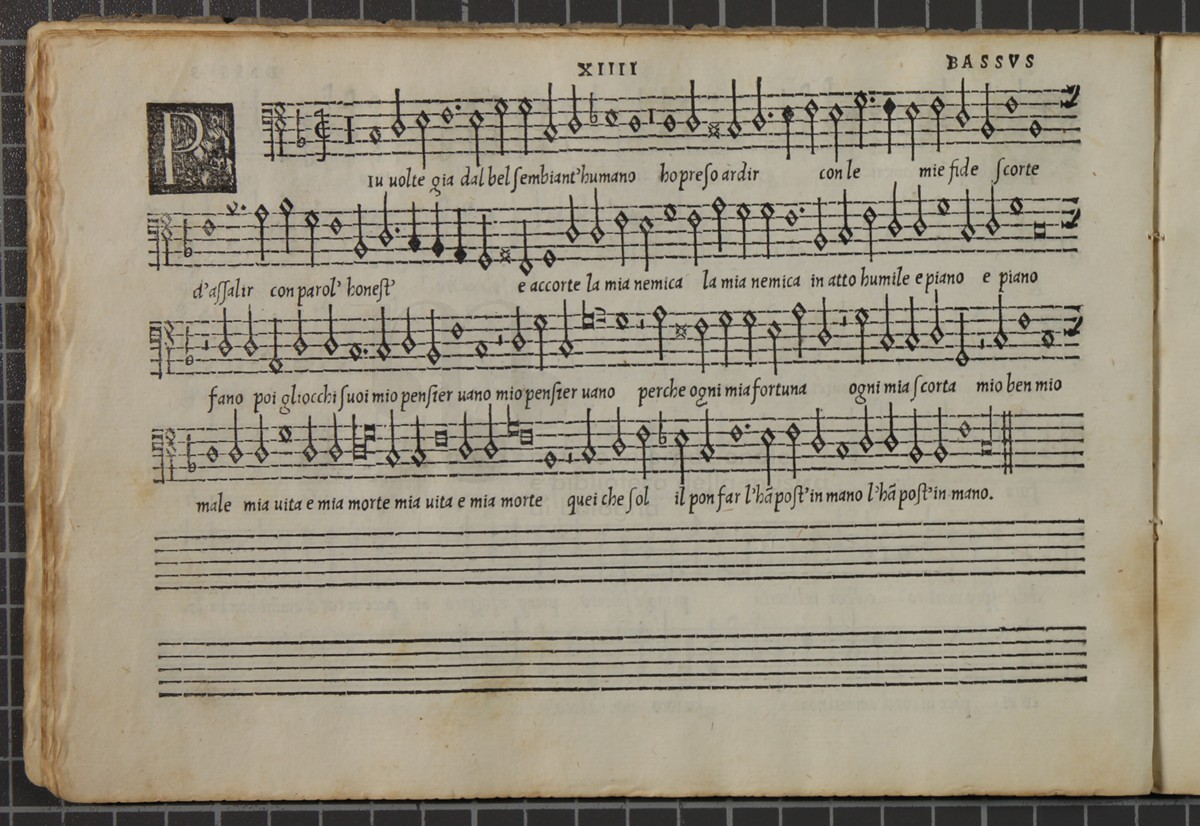 XIIII BASSVS
PIu uolte gia dal bel sembiant' humano ho preso ardir con le mie fide scorte
d'assalir con parol' honest' e accorte la mia nemica la mia nemica in atto humile e piano e piano
fano poi gliocchi suoi mio pensier uano mio pensier uano perche ogni mia fortuna ogni mia scorta mio ben mio
male mia uita e mia morte mia uita e mia morte quei che sol il pon far l'hā post' in mano l'hā post' in mano.